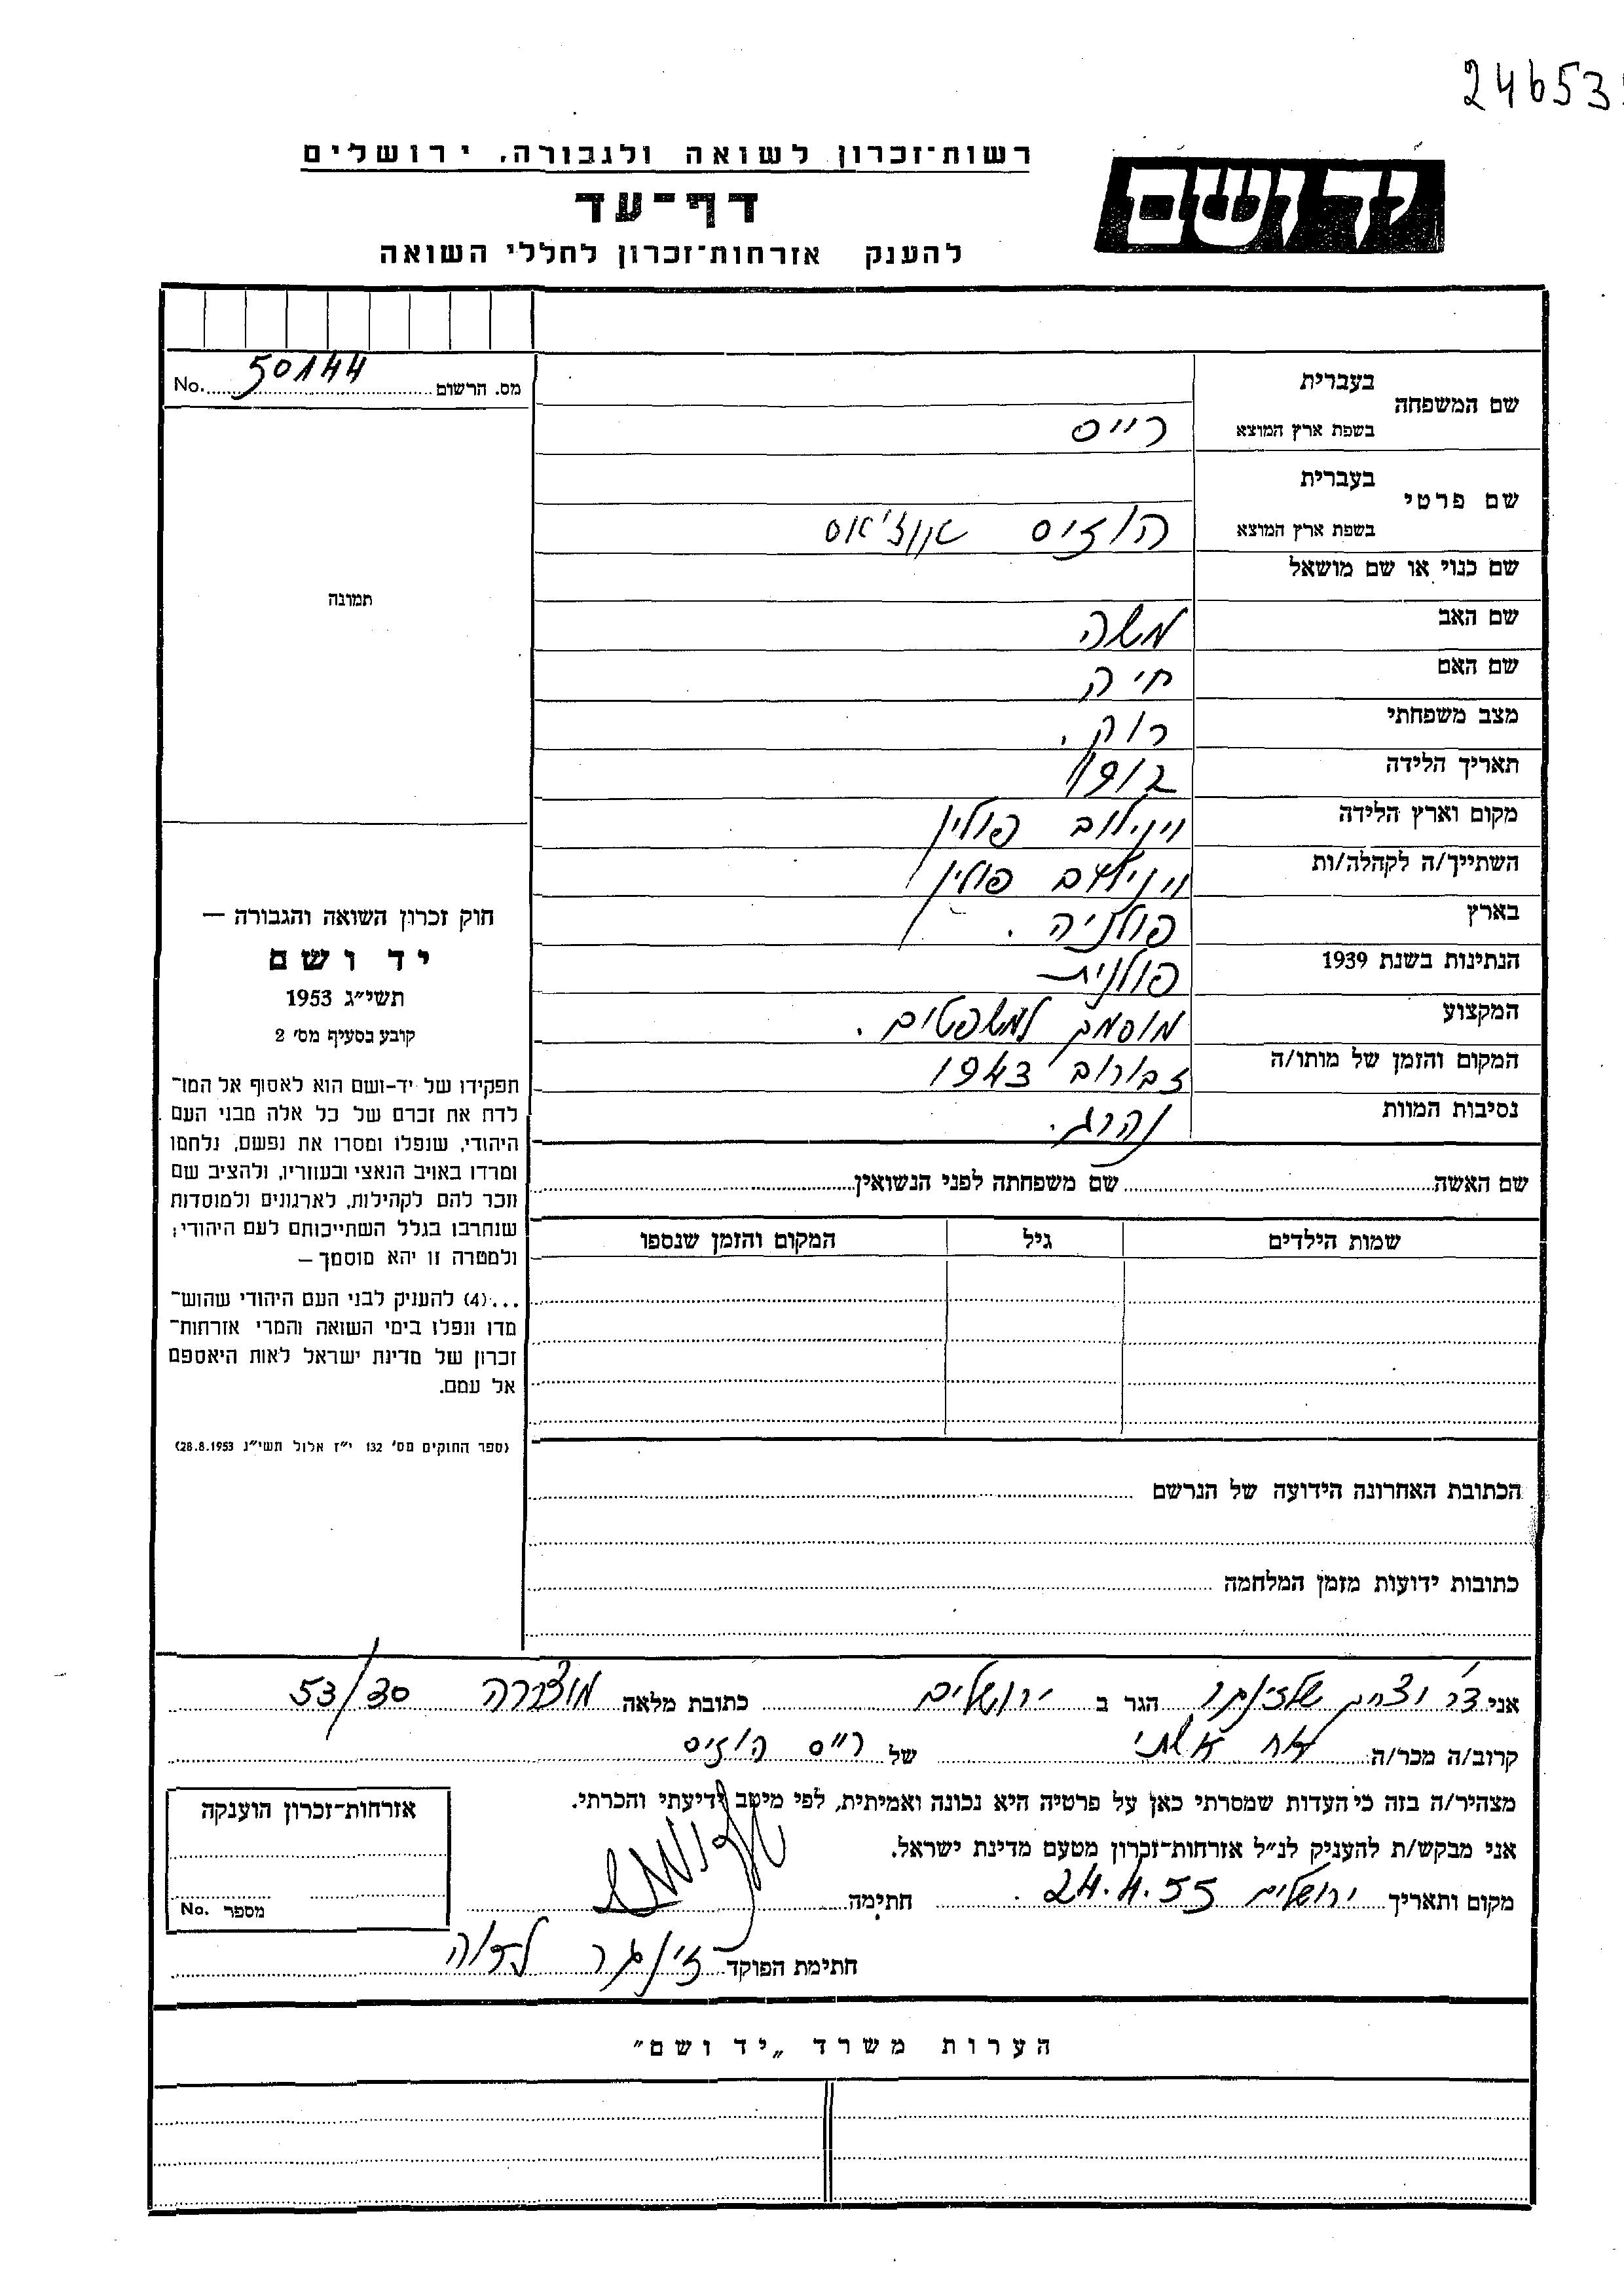 24653
רשות־זכרון לשואה ולגבורה, ירושלים
יד ושם
דף־עד
להענק אזרחות־זכרון לחללי השואה
מס. הרשום 50144 No.
תמונה
חוק זכרון השואה והגבורה —
יד ושם
תשי״ג 1953
קובע בסעיף מס׳ 2
תפקידו של יד-ושם הוא לאסוף אל המו־
לדת את זכרם של כל אלה מבני העם
היהודי, שנפלו ומסרו את נפשם, נלחמו
ומרדו באויב הנאצי ובעוזריו, ולהציב שם
וזכר להם לקהילות, לארגונים ולמוסדות
שנחרבו בגלל השתייכותם לעם היהודי;
ולמטרה זו יהא מוסמך —
...(4) להעניק לבני העם היהודי שהוש־
מדו ונפלו בימי השואה והמרי אזרחות־
זכרון של מדינת ישראל לאות היאספם
אל עמם.
(ספר החוקים מס׳ 132 י״ז אלול תשי״ג 28.8.1953)
שם המשפחה
בעברית
בשפת ארץ המוצא רייס
שם פרטי
בעברית
בשפת ארץ המוצא הוזיס
שם כנוי או שם מושאל
שם האב משה
שם האם חיה
מצב משפחתי רוק.
תאריך הלידה 1912
מקום וארץ הלידה פולין
השתייך/ה לקהלה/ות פולין
בארץ פולניה.
הנתינות בשנת 1939 פולנית
המקצוע מוסמך למשפטים.
המקום והזמן של מותו/ה זבורוב 1943
נסיבות המוות נהרג.
שם האשה שם משפחתה לפני הנשואין
שמות הילדים גיל המקום והזמן שנספו
הכתובת האחרונה הידועה של הנרשם
כתובות ידועות מזמן המלחמה
אני ד״ר שלזינגר הגר ב ירושלים כתובת מלאה מוצררה 53/30
קרוב/ה מכר/ה אח אשתי של רייס הוזיס
מצהיר/ה בזה כי העדות שמסרתי כאן על פרטיה היא נכונה ואמיתית, לפי מיטב ידיעתי והכרתי.
אני מבקש/ת להעניק לנ״ל אזרחות־זכרון מטעם מדינת ישראל.
מקום ותאריך ירושלים 24.4.55 חתימה
חתימת הפוקד זינגר
אזרחות־זכרון הוענקה
מספר No.
הערות משרד „יד ושם״